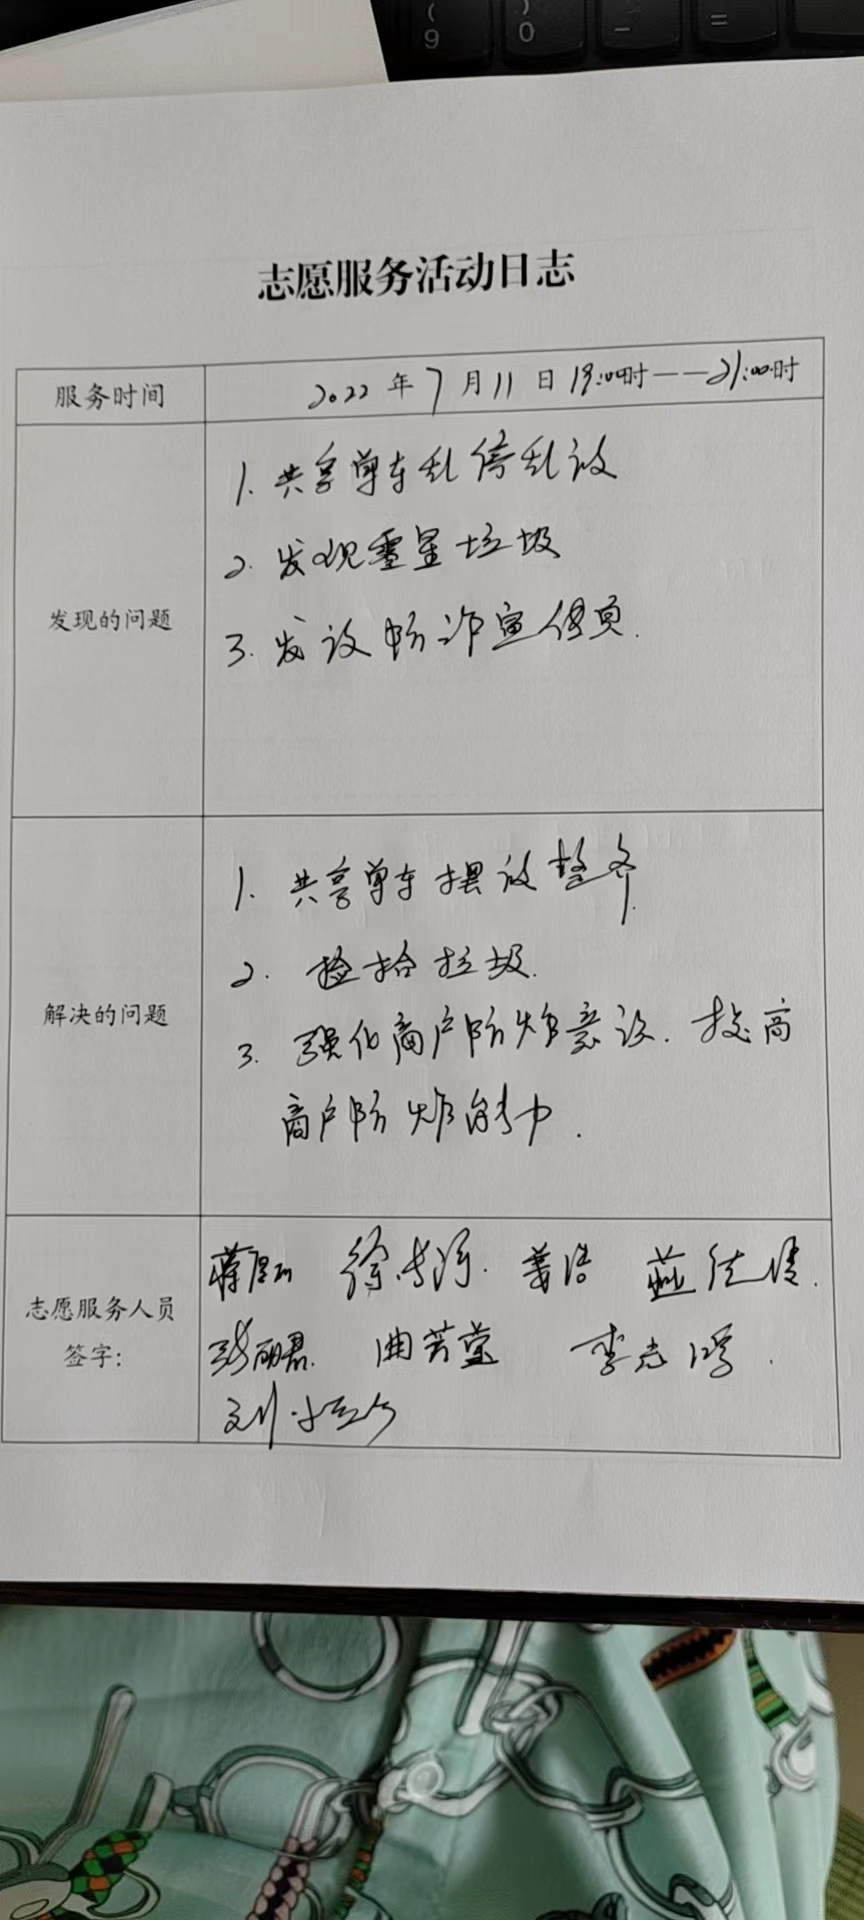 ( 9
) 0
−
=
志愿服务活动日志
服务时间
2022年7月11日19:00时——21:00时
发现的问题
1. 共享单车乱停乱放
2. 发现零星垃圾
3. 发放防诈宣传页.
解决的问题
1. 共享单车摆放整齐.
2. 捡拾垃圾.
3. 强化商户防炸意识. 提高
商户防炸能力.
志愿服务人员
签字:
徐 姜浩
张丽君. 曲芳莹 李志鸿.
刘